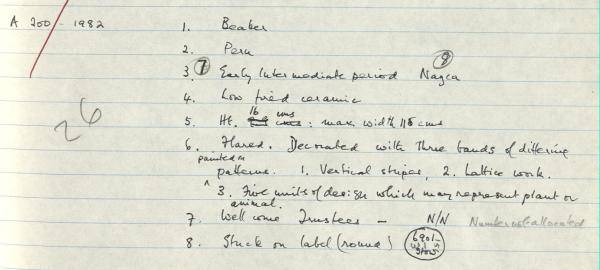 A 200 - 1982
1. Beaker
2. Peru
3. (7) Early Intermediate period Nazca (8)
4. Low fired ceramic
5. Ht. 16 cms : max width 11.5 cms
6. Flared. Decorated with three bands of differing
painted in
patterns. 1. Vertical stripes, 2. Lattice work.
^ 3. Five units of design which may represent plant or
animal.
7. Wellcome Trustees - N/N Number not allocated
8. Stuck on label (round) 6901-
26